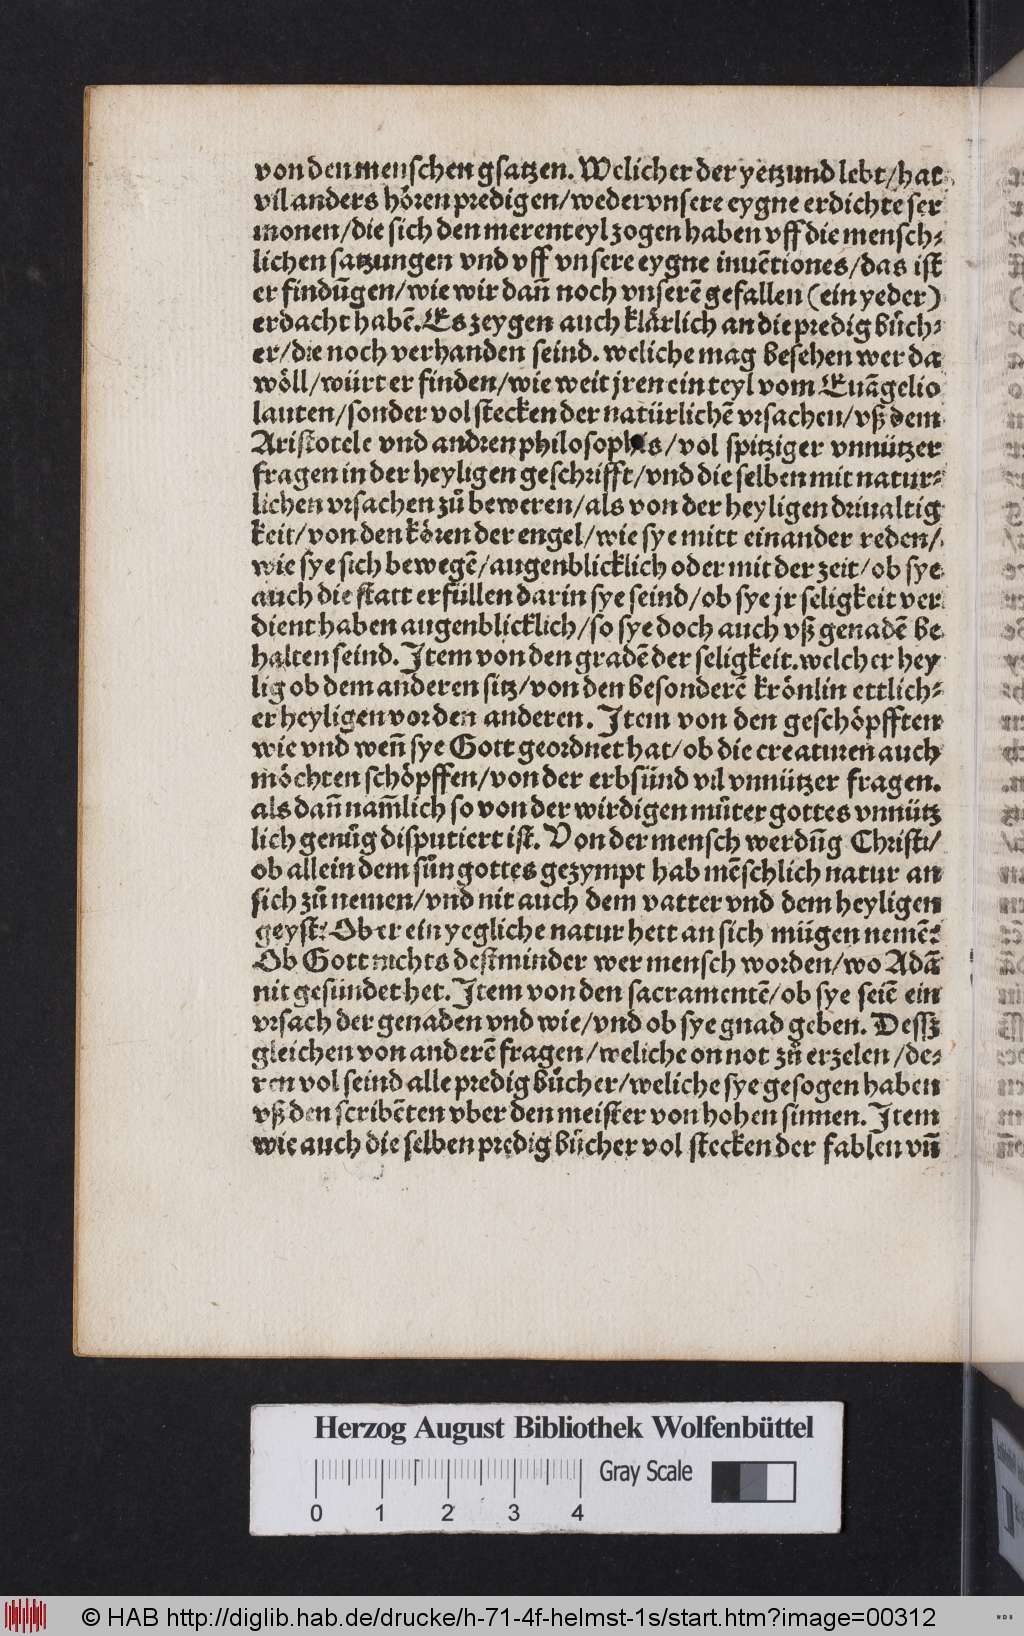 von den menschen gsatzen. Welicher der yetzund lebt/hat
vil anders hören predigen/weder vnsere eygne erdichte ser
monen/die sich den merenteyl zogen haben vff die mensch⸗
lichen satzungen vnd vff vnsere eygne inuētiones/das ist
erfindūgen/wie wir dañ noch vnserē gefallen (ein yeder)
erdacht habē. Es zeygen auch klärlich an die predig buͤch⸗
er/die noch verhanden seind. weliche mag besehen wer da
wöll/würt er finden/wie weit jren ein teyl vom Euāgelio
lauten/sonder vol stecken der natürlichē vrsachen/vß dem
Aristotele vnd andren philosophis/vol spitziger vnnützer
fragen in der heyligen geschrifft/vnd die selben mit natur⸗
lichen vrsachen zuͦ beweren/als von der heyligen driualtig
keit/von den kören der engel/wie sye mitt einander reden/
wie sye sich bewegē/augenblicklich oder mit der zeit/ob sye
auch die statt erfüllen darin sye seind/ob sye jr seligkeit ver
dient haben augenblicklich/so sye doch auch vß genadē be
halten seind. Item von den gradē der seligkeit. welcher hey
lig ob dem anderen sitz/von den besonderē krönlin ettlich⸗
er heyligen vor den anderen. Item von den geschöpfften
wie vnd weñ sye Gott geordnet hat/ob die creaturen auch
möchten schöpffen/von der erbsünd vil vnnützer fragen.
als dañ nam̄lich so von der wirdigen muͦter gottes vnnütz
lich genuͦg disputiert ist. Von der mensch werdūg Christi/
ob allein dem suͦn gottes gezympt hab mēschlich natur an
sich zuͦ nemen/vnd nit auch dem vatter vnd dem heyligen
geyst? Ob er ein yegliche natur hett an sich mügen nemē?
Ob Gott nichts destminder wer mensch worden/wo Adā
nit gesündet het. Item von den sacramentē/ob sye seiē ein
vrsach der genaden vnd wie/vnd ob sye gnad geben. Dessz
gleichen von anderē fragen/weliche on not zuͦ erzelen/de⸗
ren vol seind alle predig buͤcher/weliche sye gesogen haben
vß den scribēten vber den meister von hohen sinnen. Item
wie auch die selben predig buͤcher vol stecken der fablen vñ
Herzog August Bibliothek Wolfenbüttel
0 1 2 3 4 Gray Scale
© HAB http://diglib.hab.de/drucke/h-71-4f-helmst-1s/start.htm?image=00312